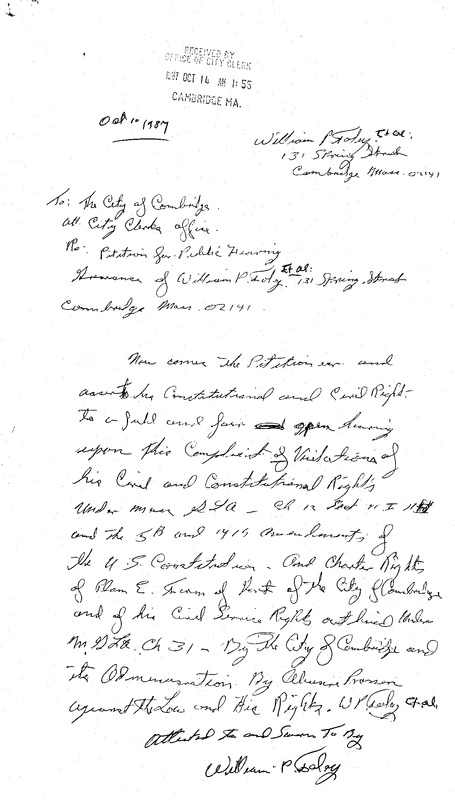 RECEIVED BY
OFFICE OF CITY CLERK
1987 OCT 14 AM 1:55
CAMBRIDGE MA.
Oct 10 1987
William P. Foley Et al:
131 Spring Street
Cambridge Mass. 02141
To: The City of Cambridge.
att. City Clerks office.
Re: Petition for Public Hearing
Grievance of William P. Foley. Et al: 131 Spring Street
Cambridge Mass. 02141.
Now comes the Petitioner and
asserts his Constitutional and Civil Rights
to a full and fair open hearing
upon this Complaint of Violations of
his Civil and Constitutional Rights
under Mass GLA - Ch 12 Sect 11 I 11H
and the 5th and 14th amendments of
the U.S. Constitution. And Charter Rights
of Plan E. Form of Govt of the City of Cambridge
and of his Civil Service Rights outlined Under
M.GLA. Ch 31 - By the City of Cambridge and
its Administration. By
against the Law and His Rights. W P Foley et al
Attested to and Sworn To By
William P Foley